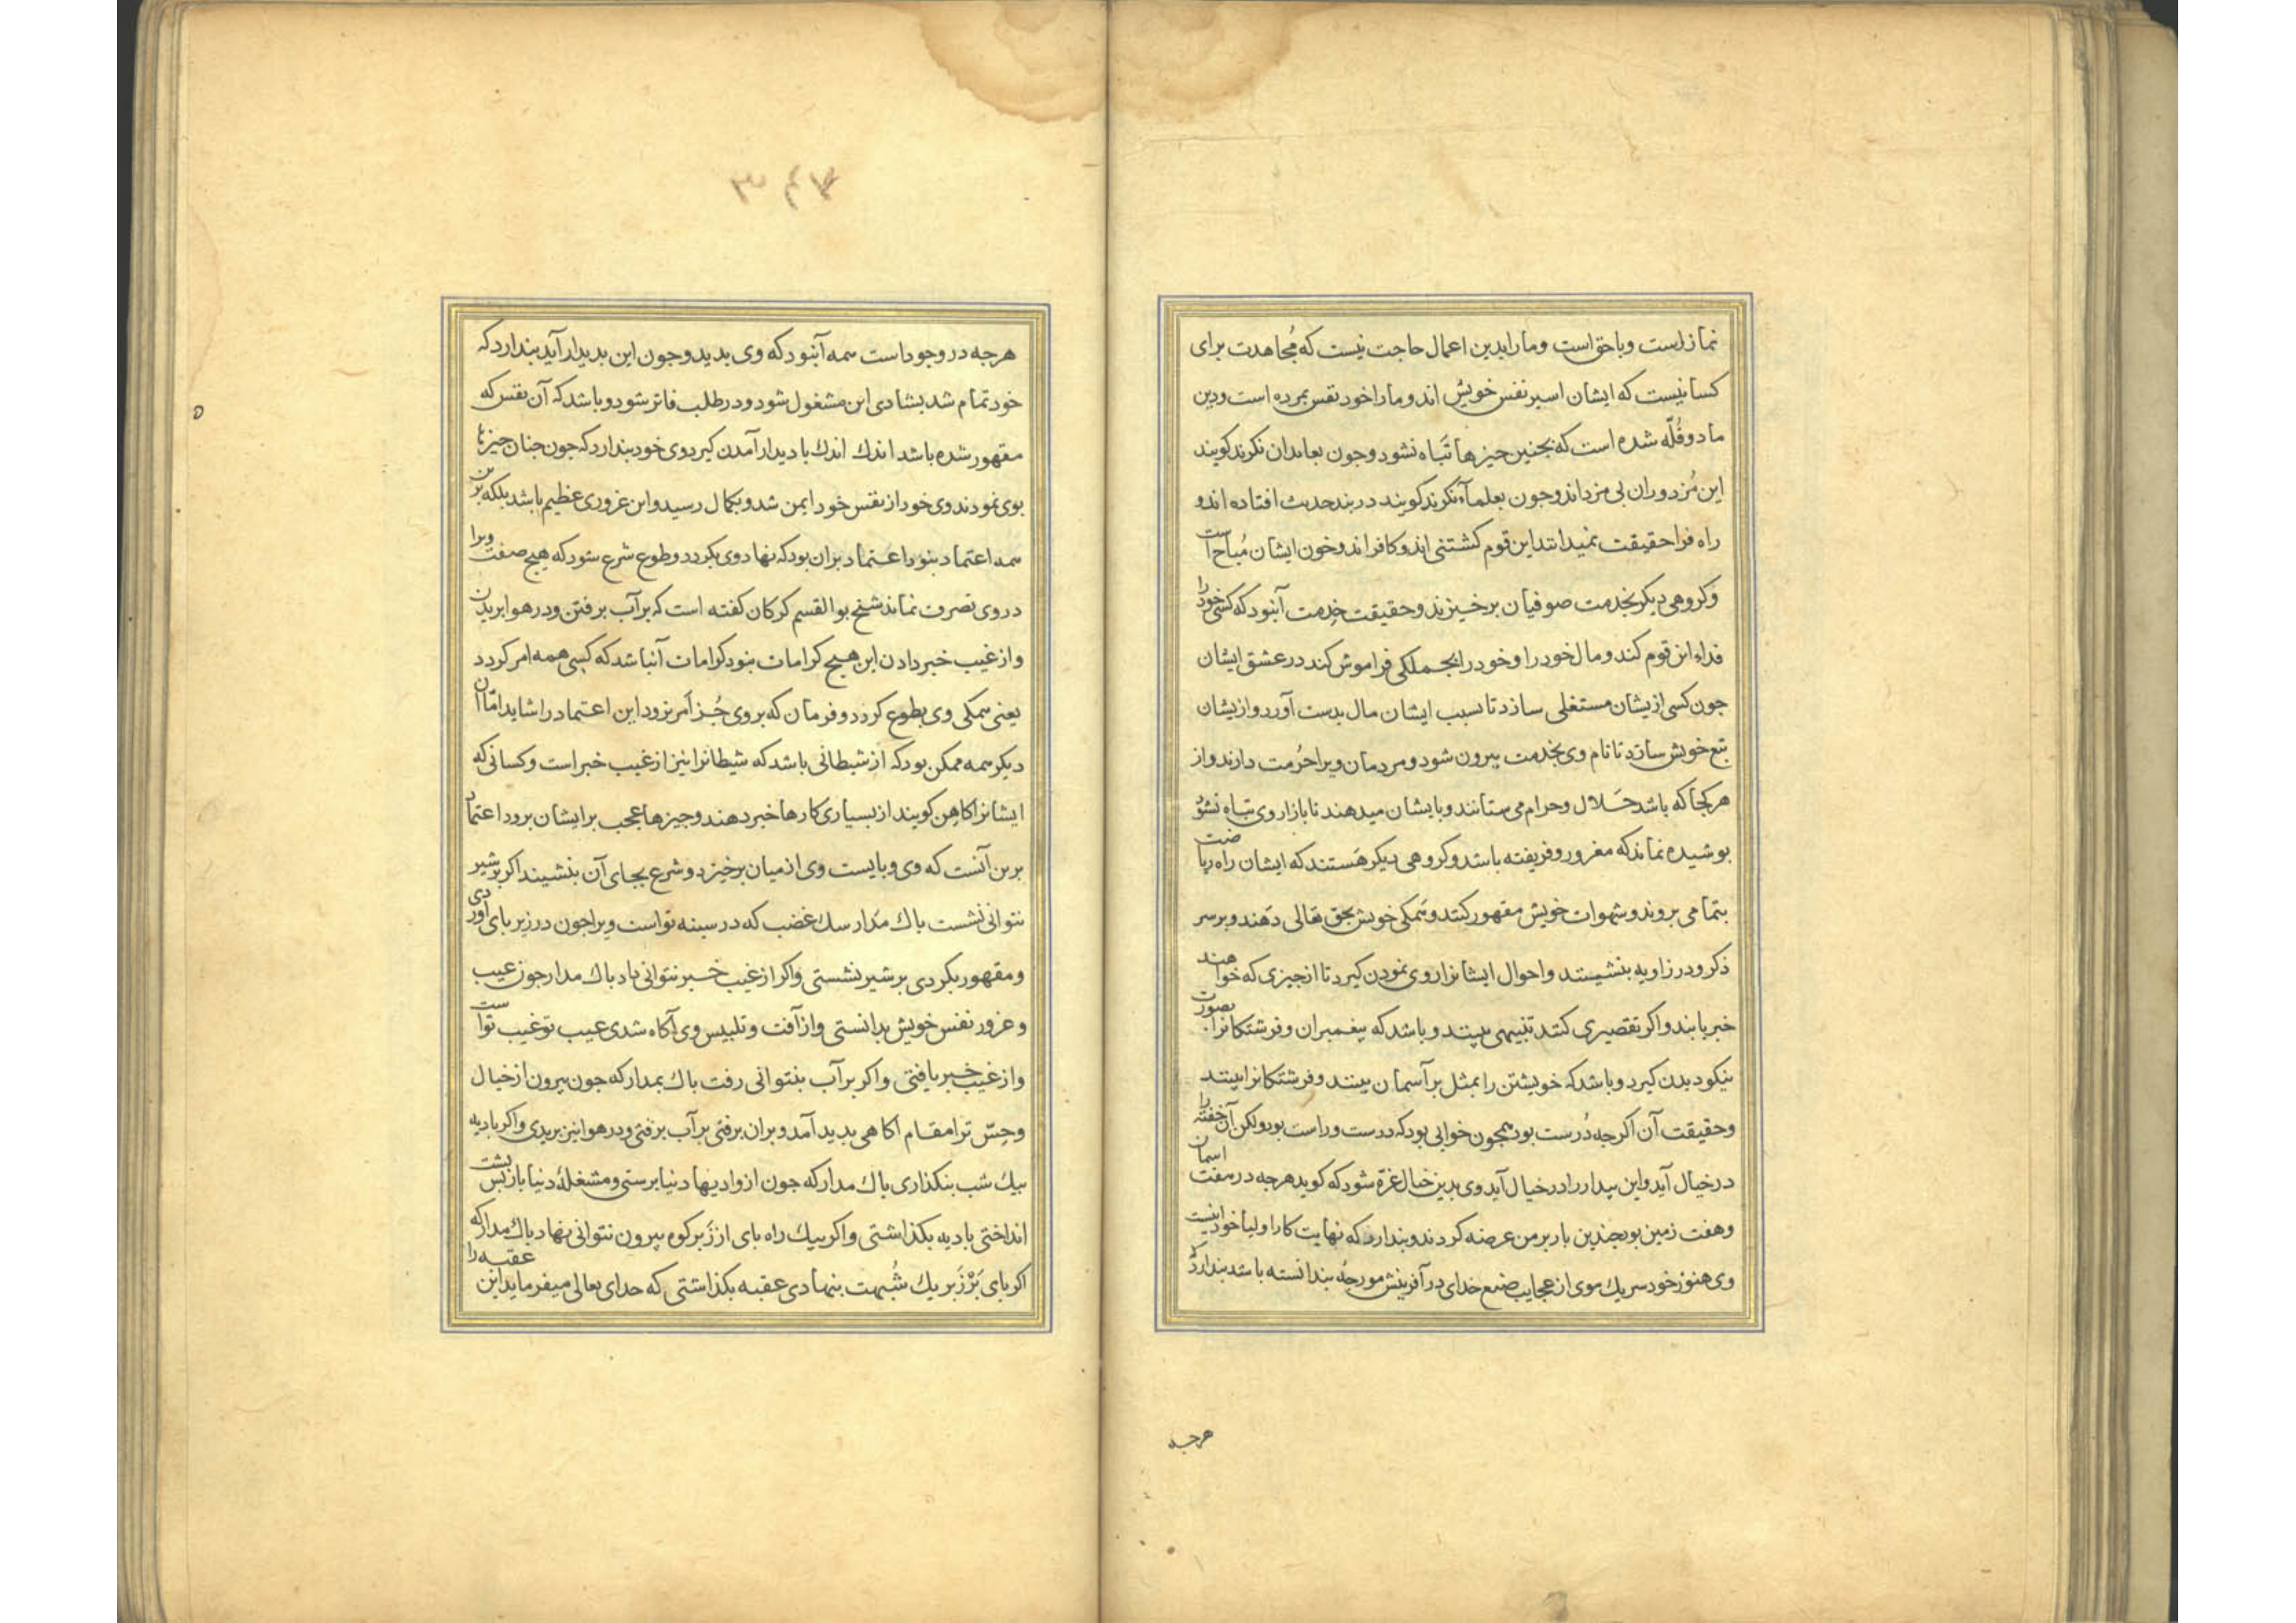 نمازاست وباحق است ومارابدین اعمال حاجت نیست که مُجاهدت برای
کسانیست که ایشان اسیر نفس خویش اند وما را خود نفس بمرده است ودین
ما دوقُلّه شده است که بجنین جیزها تَباه نشود وجون بعابدان نکرند کویند
این مُزدوران بی مزد اند وجون بعلماء نکرند کویند در بند حدیث افتاده اند و
راه فرا حقیقت نمیدانند این قوم کشتنی اند و کافراند وخون ایشان مُباح است
وکروهی دیکر بخدمت صوفیان برخیزند وحقیقت خدمت آنبود که کسی خود را
فداء این قوم کند ومال خود را وخود را بجملکی فراموش کند در عشق ایشان
جون کسی از یشان مستغلی سازد تا بسبب ایشان مال بدست آورد وازیشان
تبع خویش سازد تا نام وی بخدمت بیرون شود ومردمان ویرا حُرمت دارند واز
هرکجا که باشد حَلال وحرام می ستانند وبایشان میدهند تا بازار وی تباه نشود
بوشیده نماند که مغرور وفریفته باشد وکروهی دیکر هَستند که ایشان راه ریاضت
بتمامی بروند وشهوات خویش مقهور کنند وهمکی خویش بحق تعالی دَهند وبر سر
ذکر ودر زاویه بنشینند واحوال ایشانرا روی نمودن کیرد تا از جیزی که خواهند
خبر یابند واکر تقصیری کنند تنبیهی بینند وباشد که پیغمبران وفرشتکانرا بصورت
نیکو دیدن کیرد وباشد که خویشتن را بمثل بر آسمان بینند وفرشتکانرا بینند
وحقیقت آن اکرجه دُرست بود همجون خوابی بود که درست وراست بود ولکن آن خفته را
در خیال آید واین بیدار را در خیال آید وی بدین خیال غرّه شود که کوید هرجه در هفت اسمان
وهفت زمین بود جندین بار بر من عرضه کردند وبندارد که نهایت کار اولیا خود اینست
وی هنوز خود سر یك موی از عجایب صنع خدای در آفرینش مورجهٔ بندانسته باشد بندارد که
هرجه
۳۴۷
هرجه در وجود است همه آنبود که وی بدید وجون این بدیدار آید بندارد که
خود تمام شد بشادی این مشغول شود ودر طلب فاتر شود وباشد که آن نفس که
مقهور شده باشد اندك اندك با دیدار آمدن کیرد وی خود بندارد که جون جنان جیزها
بوی نمودند وی خود از نفس خود ایمن شد وبکمال رسید واین غروری عظیم باشد بلکه برین
همه اعتماد بنود اعتماد بران بود که نهاد وی بکردد وطوع شرع شود که هیج صفت ویرا
در وی تصرف نماند شیخ بوالقسم کرکان کفته است که بر آب برفتن ودر هوا بریدن
واز غیب خبر دادن این هیج کرامات بنود کرامات آنباشد که کسی همه امر کردد
یعنی همکی وی بطوع کردد وفرمان که بروی جُز اَمر نرود این اعتماد را شاید امّا آن
دیکر همه ممکن بود که از شیطانی باشد که شیطانرا نیز از غیب خبر است وکسانی که
ایشانرا کاهِن کویند از بسیاری کارها خبر دهند وجیزها عجب بر ایشان برود اعتماد
برین آنست که وی وبایست وی از میان برخیزد وشرع بجای آن بنشیند اکر بر شیر
نتوانی نشست باك مَدار سك غضب که در سینه تواست ویرا جون در زیر بای آوردی
ومقهور بکردی بر شیر نشستی واکر از غیب خبر نتوانی داد باك مدار جون عیب
وغرور نفس خویش بدانستی واز آفت وتلبیس وی آکاه شدی عیب تو غیب تواست
واز غیب خبر یافتی واکر بر آب بنتوانی رفت باك بمدار که جون بیرون از خیال
وحِسّ ترا مقام آکاهی بدید آمد وبران برفتی بر آب برفتی ودر هوا نیز بریدی واکر بادیه
بیك شب بنکذاری باك مدار که جون از وادیها دنیا برستی ومشغلهٔ دنیا باز بس بشت
انداختی بادیه بکذاشتی واکر بیك راه بای از زَبر کوه بیرون نتوانی نهاد باك مدار که
اکر بای بَر زَبر یك شُبهت بنهادی عقبه بکذاشتی که خدای تعالی میفرماید این عقبه را